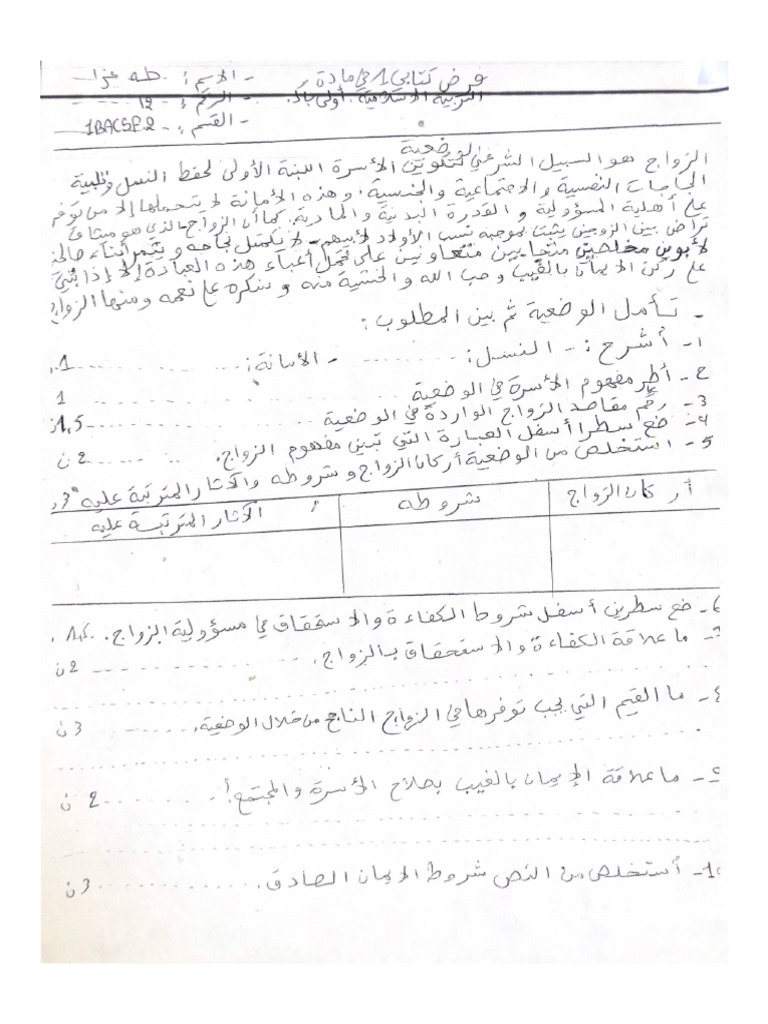 فرض كتابي 1 في مادة - الاسم: طه
التربية الاسلامية. أولى باك. - الرقم: 12
- القسم: 1BACSP.2
الوضعية
الزواج هو السبيل الشرعي لتكوين الأسرة اللبنة الأولى لحفظ النسل وتلبية
الحاجات النفسية والاجتماعية والجنسية، وهذه الأمانة لا يتحملها إلا من توفر
على أهلية المسؤولية و القدرة البدنية والمادية. كما أن الزواج الذي هو ميثاق
تراض بين الزوجين يثبت بموجبه نسب الأولاد لأبيهم لا يكتمل نجاحه و يثمر أبناء صالحين
لأبوين مخلصين متحابين متعاونين على تحمل أعباء هذه العبادة إلا إذا بني
على ركن الإيمان بالغيب وحب الله والخشية منه و شكره على نعمه ومنها الزواج
- تأمل الوضعية ثم بين المطلوب:
1- أشرح: - النسل: ........ - الأمانة: ........ 1
2- أطر مفهوم الأسرة في الوضعية 1
3- رقم مقاصد الزواج الواردة في الوضعية 1,5ن
4- ضع سطرا أسفل العبارة التي تبين مفهوم الزواج. ........ 2ن
5- استخلص من الوضعية أركان الزواج و شروطه والآثار المترتبة عليه 3
أركان الزواج شروطه الآثار المترتبة عليه
6- ضع سطرين أسفل شروط الكفاءة والاستحقاق في مسؤولية الزواج.
- ما علاقة الكفاءة والاستحقاق بالزواج. ........ 2ن
- ما القيم التي يجب توفرها في الزواج الناجح من خلال الوضعية. ........ 3ن
- ما علاقة الإيمان بالغيب بصلاح الأسرة والمجتمع؟ ........ 2ن
10- أستخلص من النص شروط الإيمان الصادق. ........ 3ن